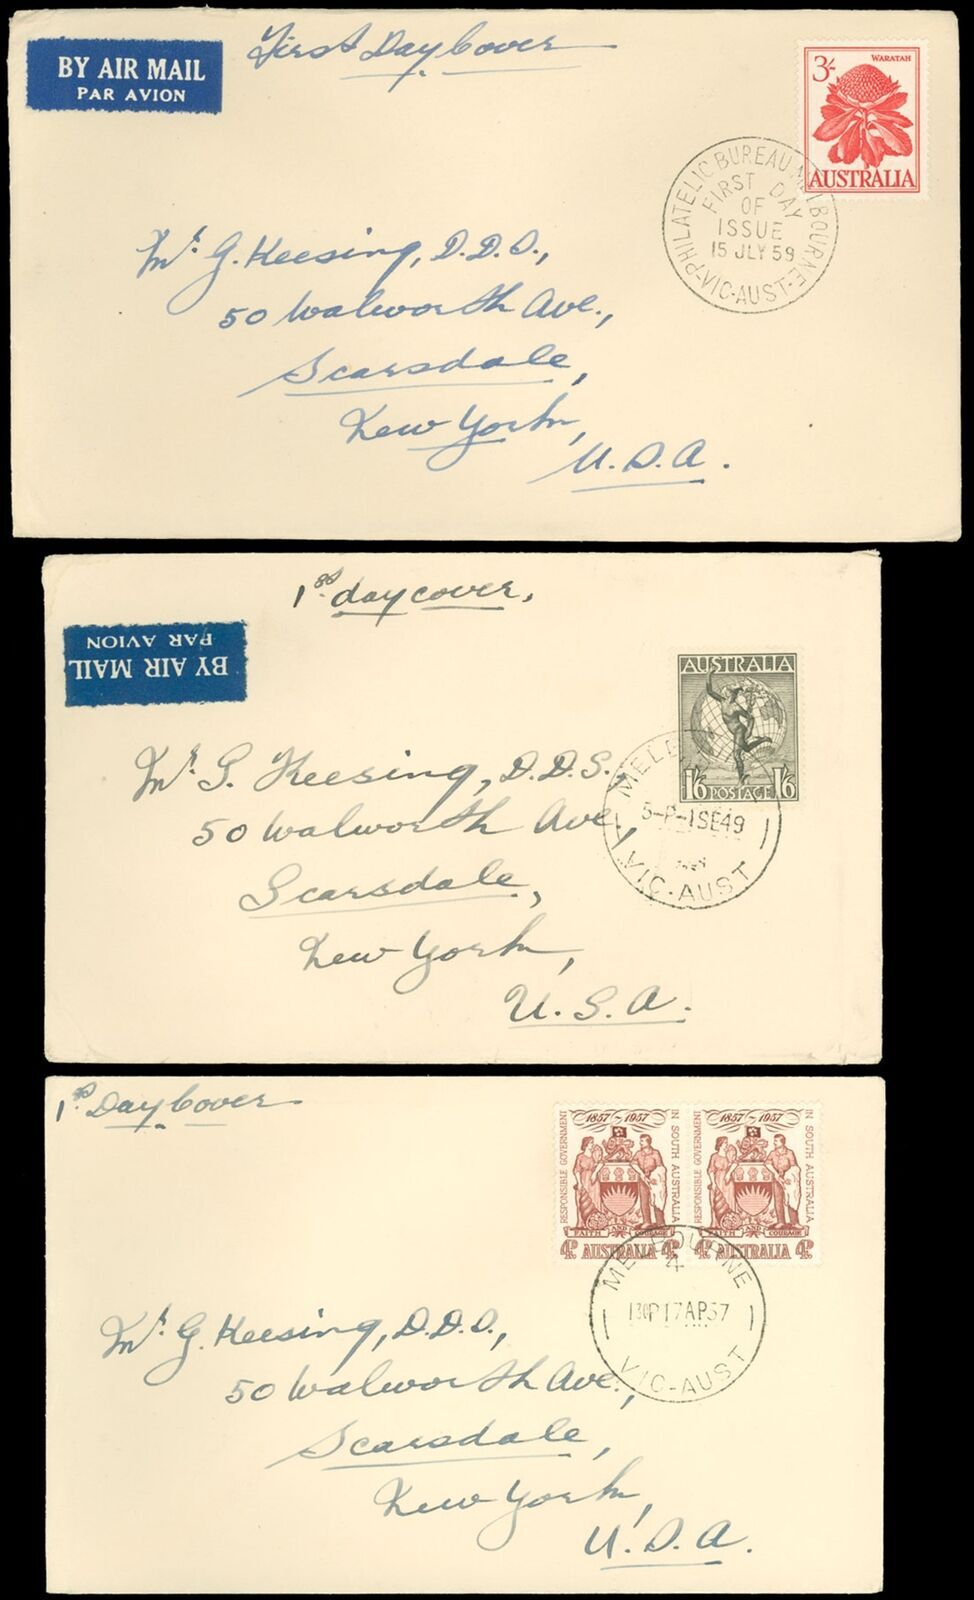 BY AIR MAIL
PAR AVION
First Day Cover
3/-
WARATAH
AUSTRALIA
PHILATELIC BUREAU MELBOURNE
FIRST DAY
OF
ISSUE
15 JLY 59
VIC-AUST-
Mr. G. Keesing, D.D.S.,
50 Walworth Ave.,
Scarsdale,
New York,
U.S.A.
1st day cover,
BY AIR MAIL
PAR AVION
AUSTRALIA
1/6 POSTAGE 1/6
MELBOURNE
5-P-1SE49
VIC-AUST
Mr. G. Keesing, D.D.S.,
50 Walworth Ave.,
Scarsdale,
New York,
U.S.A.
1st Day Cover
1857~1957
RESPONSIBLE GOVERNMENT
IN SOUTH AUSTRALIA
FAITH AND COURAGE
4D. AUSTRALIA 4D.
1857~1957
RESPONSIBLE GOVERNMENT
IN SOUTH AUSTRALIA
FAITH AND COURAGE
4D. AUSTRALIA 4D.
MELBOURNE
4
130P17AP57
VIC-AUST
Mr. G. Keesing, D.D.S.,
50 Walworth Ave.,
Scarsdale,
New York,
U.S.A.